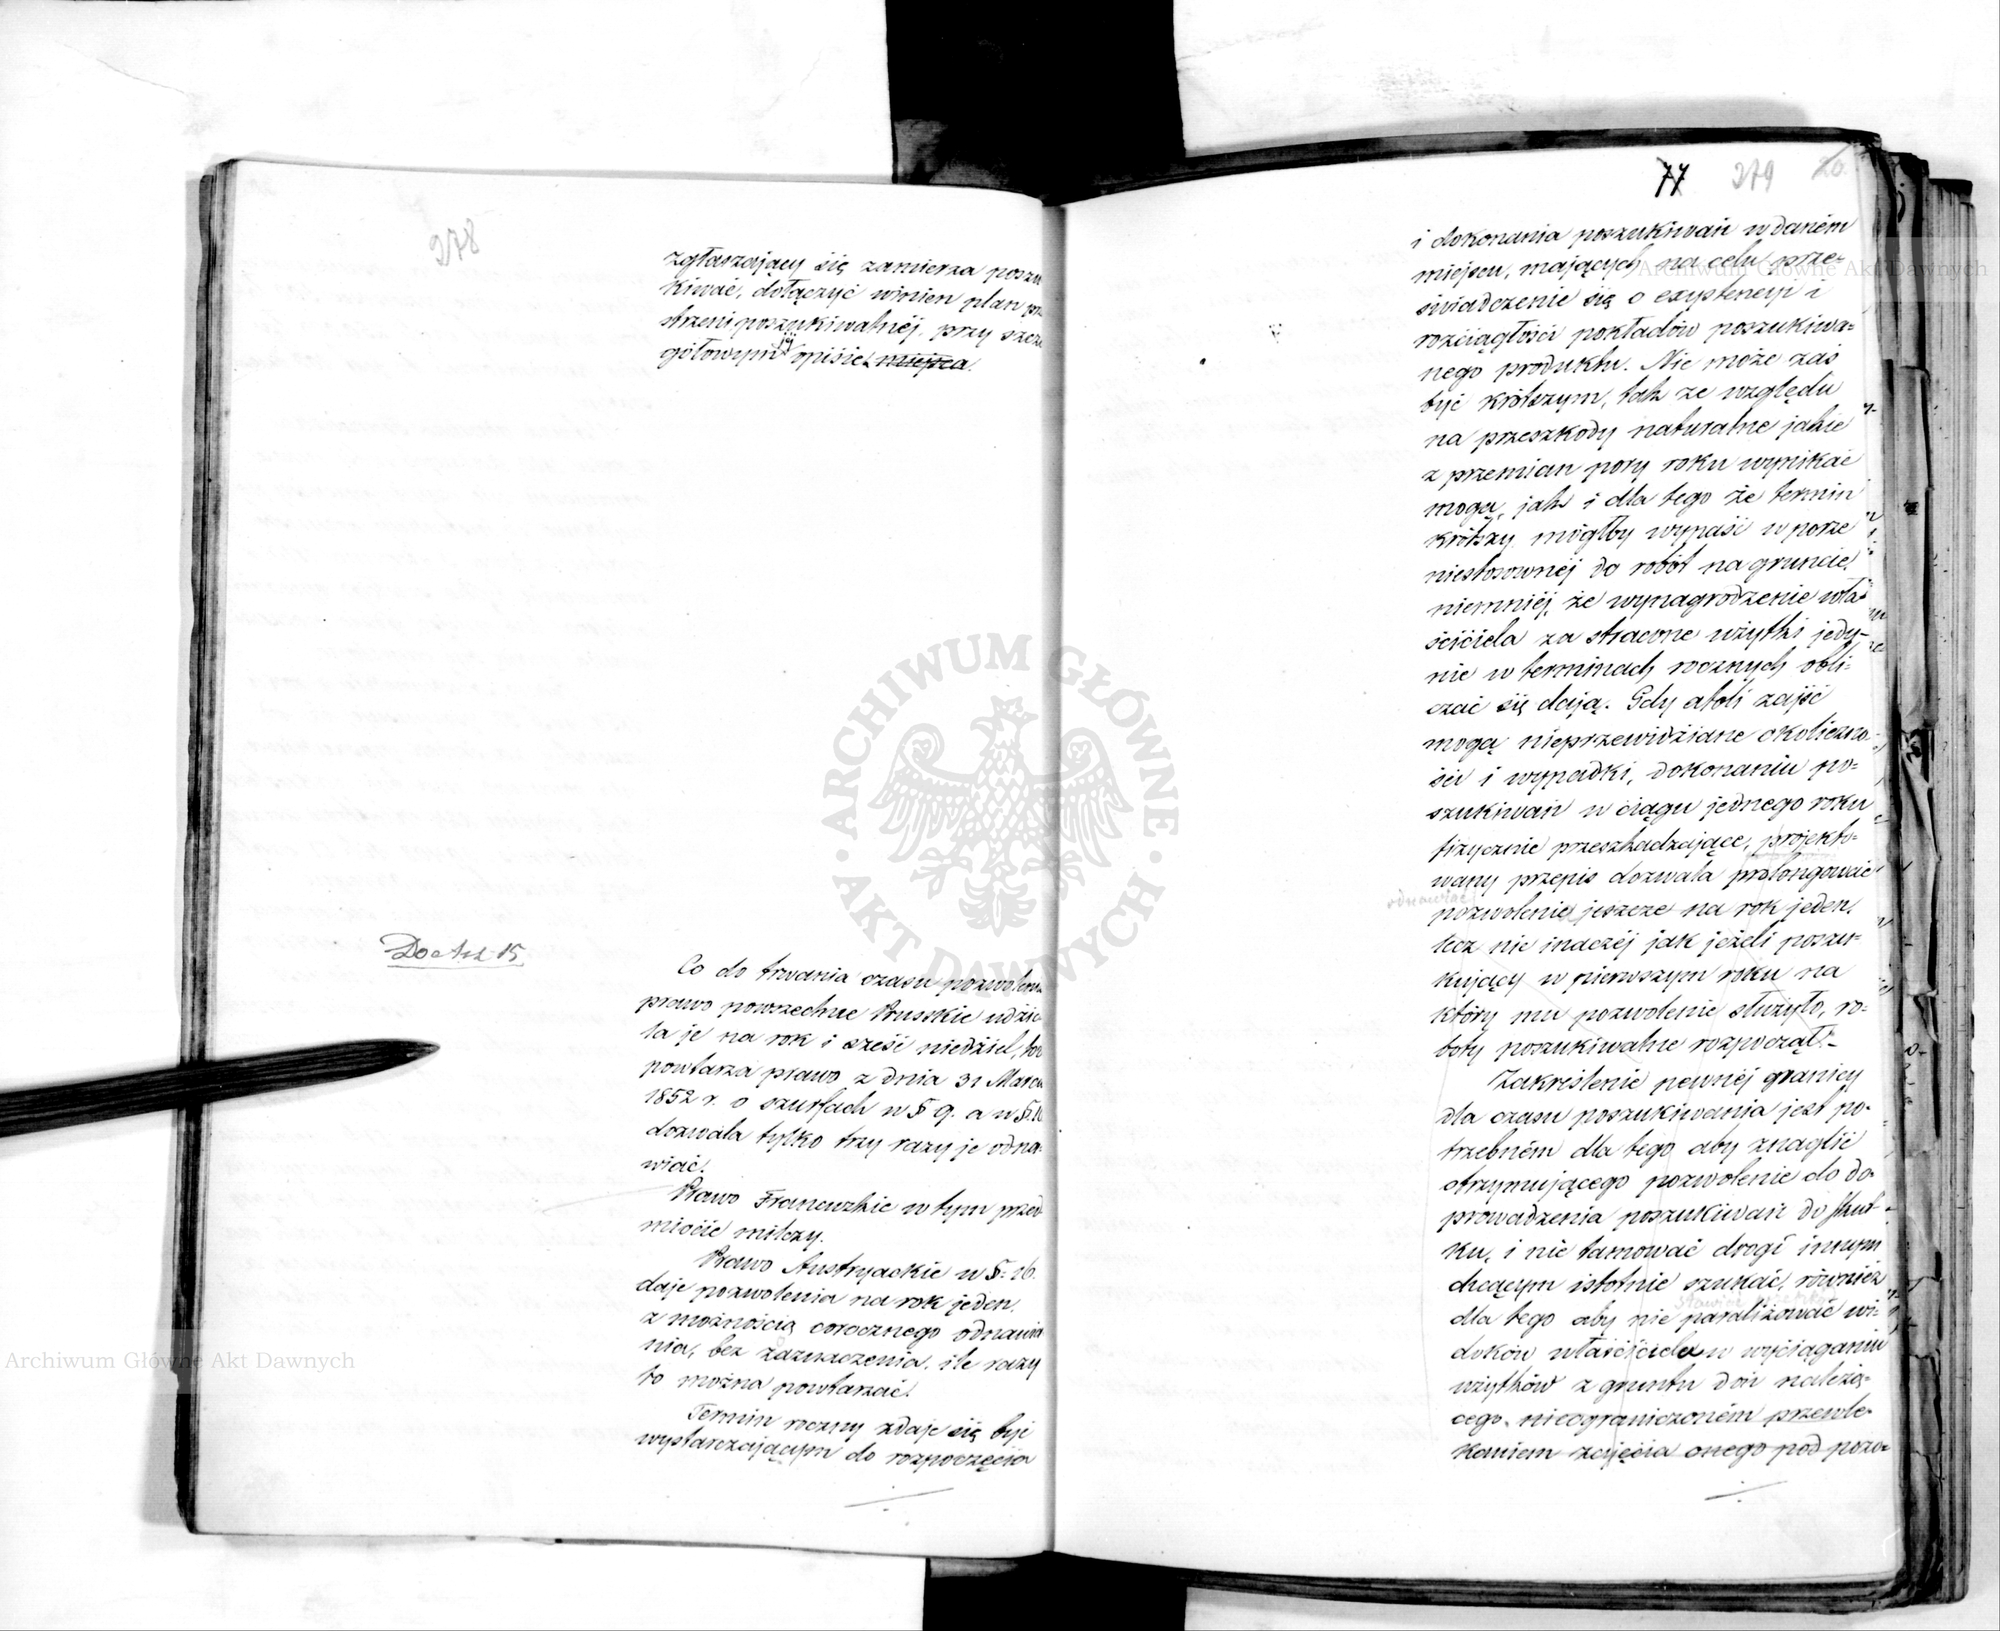 278
zgłaszający się zamierza poszu
kiwać, dołączyć winien plan prze
strzeni poszukiwalnéj, przy szcze
gółowym jéj opisie miejsca.
Do Art. 15
Co do trwania czasu pozwolenia
prawo powszechne Prusskie udzie
la je na rok i sześć niedziel, to
powtarza prawo z dnia 31 Marca
1852 r. o szurfach w § 9. a w §. 10
dozwala tylko trzy razy je odna-
wiać.
Prawo Francuzkie w tym przed
miocie milczy.
Prawo Austryackie w §: 16.
daje pozwolenia na rok jeden,
z możnością corocznego odnawia
nia, bez zaznaczenia, ile razy
to można powtarzać.
Termin roczny zdaje się być
wystarczającym do rozpoczęcia
77 279 20.
i dokonania poszukiwań w daném
miejscu, mających na celu prze-
świadczenie się o exystencyi i
rozciągłości pokładów poszukiwa-
nego produktu. Nie może zaś
być krótszym, tak ze względu
na przeszkody naturalne jakie
z przemian pory roku wynikać
mogą, jak i dla tego że termin
krótszy mógłby wypaść w porze
niestosownéj do robót na gruncie,
niemniéj, że wynagrodzenie wła-
ściciela za stracone użytki jedy-
nie w terminach rocznych obli-
czać się dają. Gdy atoli zajść
mogą nieprzewidziane okoliczno-
ści i wypadki, dokonaniu po-
szukiwań w ciągu jednego roku
fizycznie przeszkadzające, projekto-
wany przepis dozwala prolongować
odnawiać
pozwolenie jeszcze na rok jeden,
lecz nie inaczéj jak jeżeli poszu-
kujący w pierwszym roku na
który mu pozwolenie służyło, ro-
boty poszukiwalne rozpoczął.
Zakreślenie pewnéj granicy
dla czasu poszukiwania jest po-
trzebném dla tego aby znaglić
otrzymującego pozwolenie do do-
prowadzenia poszukiwań do skut-
ku, i nie tamować drogi innym
chcącym istotnie szukać, również
dla tego aby nie paraliżować wi-
doków właściciela w wyciąganiu
użytków z gruntu doń należą-
cego, nieograniczoném przewle-
kaniem zajęcia onego pod poszu-
Archiwum Główne Akt Dawnych
ARCHIWUM GŁÓWNE AKT DAWNYCH
Archiwum Główne Akt Dawnych